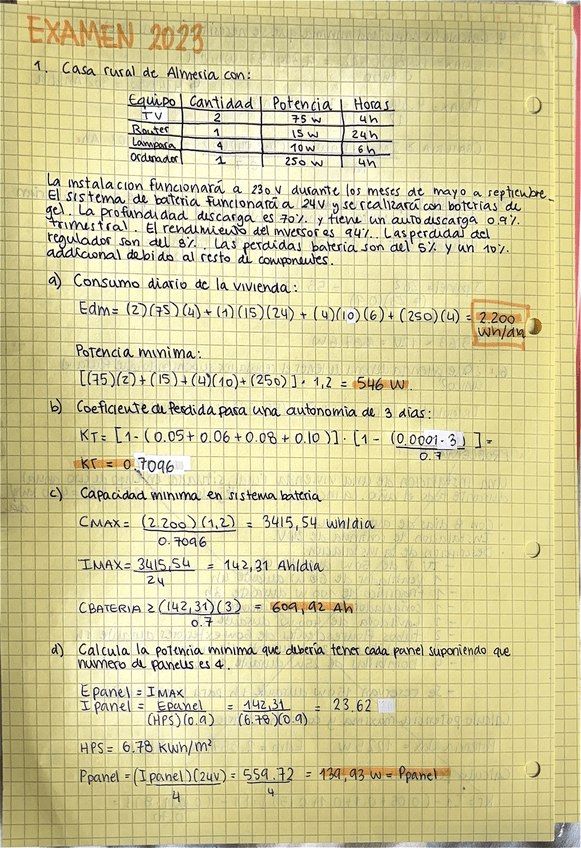 EXAMEN 2023
1. Casa rural de Almeria con:
Equipo | Cantidad | Potencia | Horas
TV | 2 | 75 W | 4h
Router | 1 | 15 W | 24h
Lampara | 4 | 10 W | 6h
Ordenador | 1 | 250 W | 4h
La instalacion funcionará a 230 V durante los meses de mayo a septiembre.
El sistema de bateria funcionará a 24V y se realizará con baterias de
gel. La profundidad descarga es 70% y tiene un autodescarga 0.9%
trimestral. El rendimiento del inversor es 94%. Las perdidas del
regulador son del 8%. Las perdidas bateria son del 5% y un 10%
addicional debido al resto de componentes.
a) Consumo diario de la vivienda:
Edm = (2)(75)(4) + (1)(15)(24) + (4)(10)(6) + (250)(4) = 2.200 Wh/dia
Potencia minima:
[(75)(2) + (15) + (4)(10) + (250)] · 1,2 = 546 W.
b) Coeficiente de Perdida para una autonomia de 3 dias:
KT = [1 - (0.05 + 0.06 + 0.08 + 0.10)] · [1 - (0,0001 · 3) / 0.7] =
KT = 0.7096
c) Capacidad minima en sistema bateria
CMAX = (2.200)(1,2) / 0.7096 = 3415,54 Wh/dia
IMAX = 3415,54 / 24 = 142,31 Ah/dia
CBATERIA ≥ (142,31)(3) / 0.7 = 609,92 Ah
d) Calcula la potencia minima que deberia tener cada panel suponiendo que
numero de panells es 4.
Epanel = IMAX
Ipanel = Epanel / (HPS)(0.9) = 142,31 / (6.78)(0.9) = 23.62
HPS = 6.78 KWh/m²
Ppanel = (Ipanel)(24V) / 4 = 559.72 / 4 = 139,93 W = Ppanel